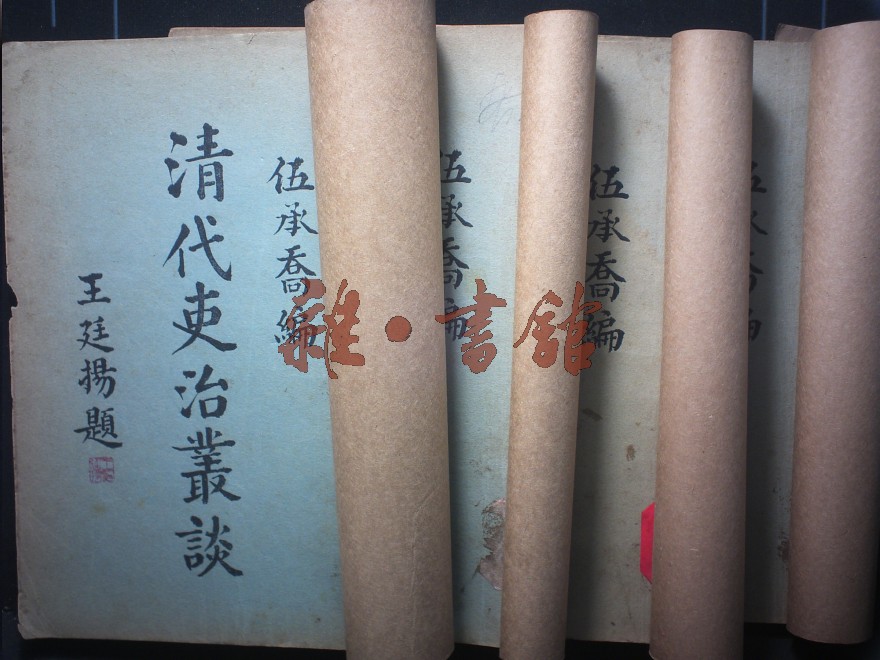 伍承喬編
清代吏治叢談
王廷揚題
伍承喬編
伍承喬編
雜·書館